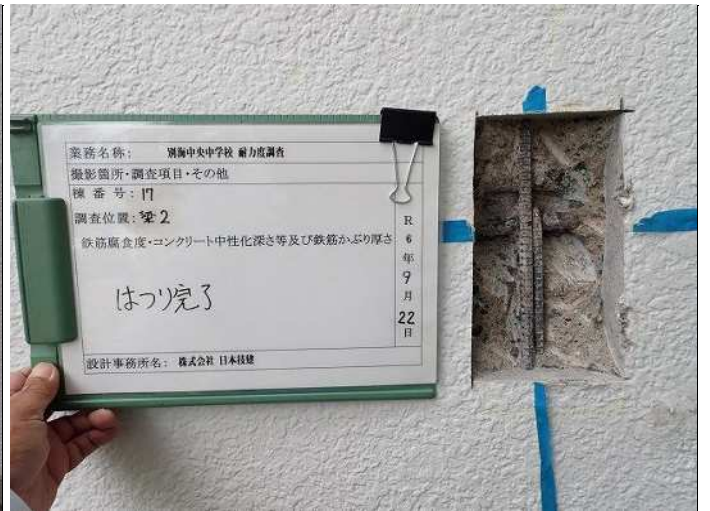 業務名称: 別海中央中学校 耐力度調査
撮影箇所・調査項目・その他
棟番号: 17
調査位置: 梁2
鉄筋腐食度・コンクリート中性化深さ等及び鉄筋かぶり厚さ
はつり完了
R
6
年
9
月
22
日
設計事務所名: 株式会社 日本技建